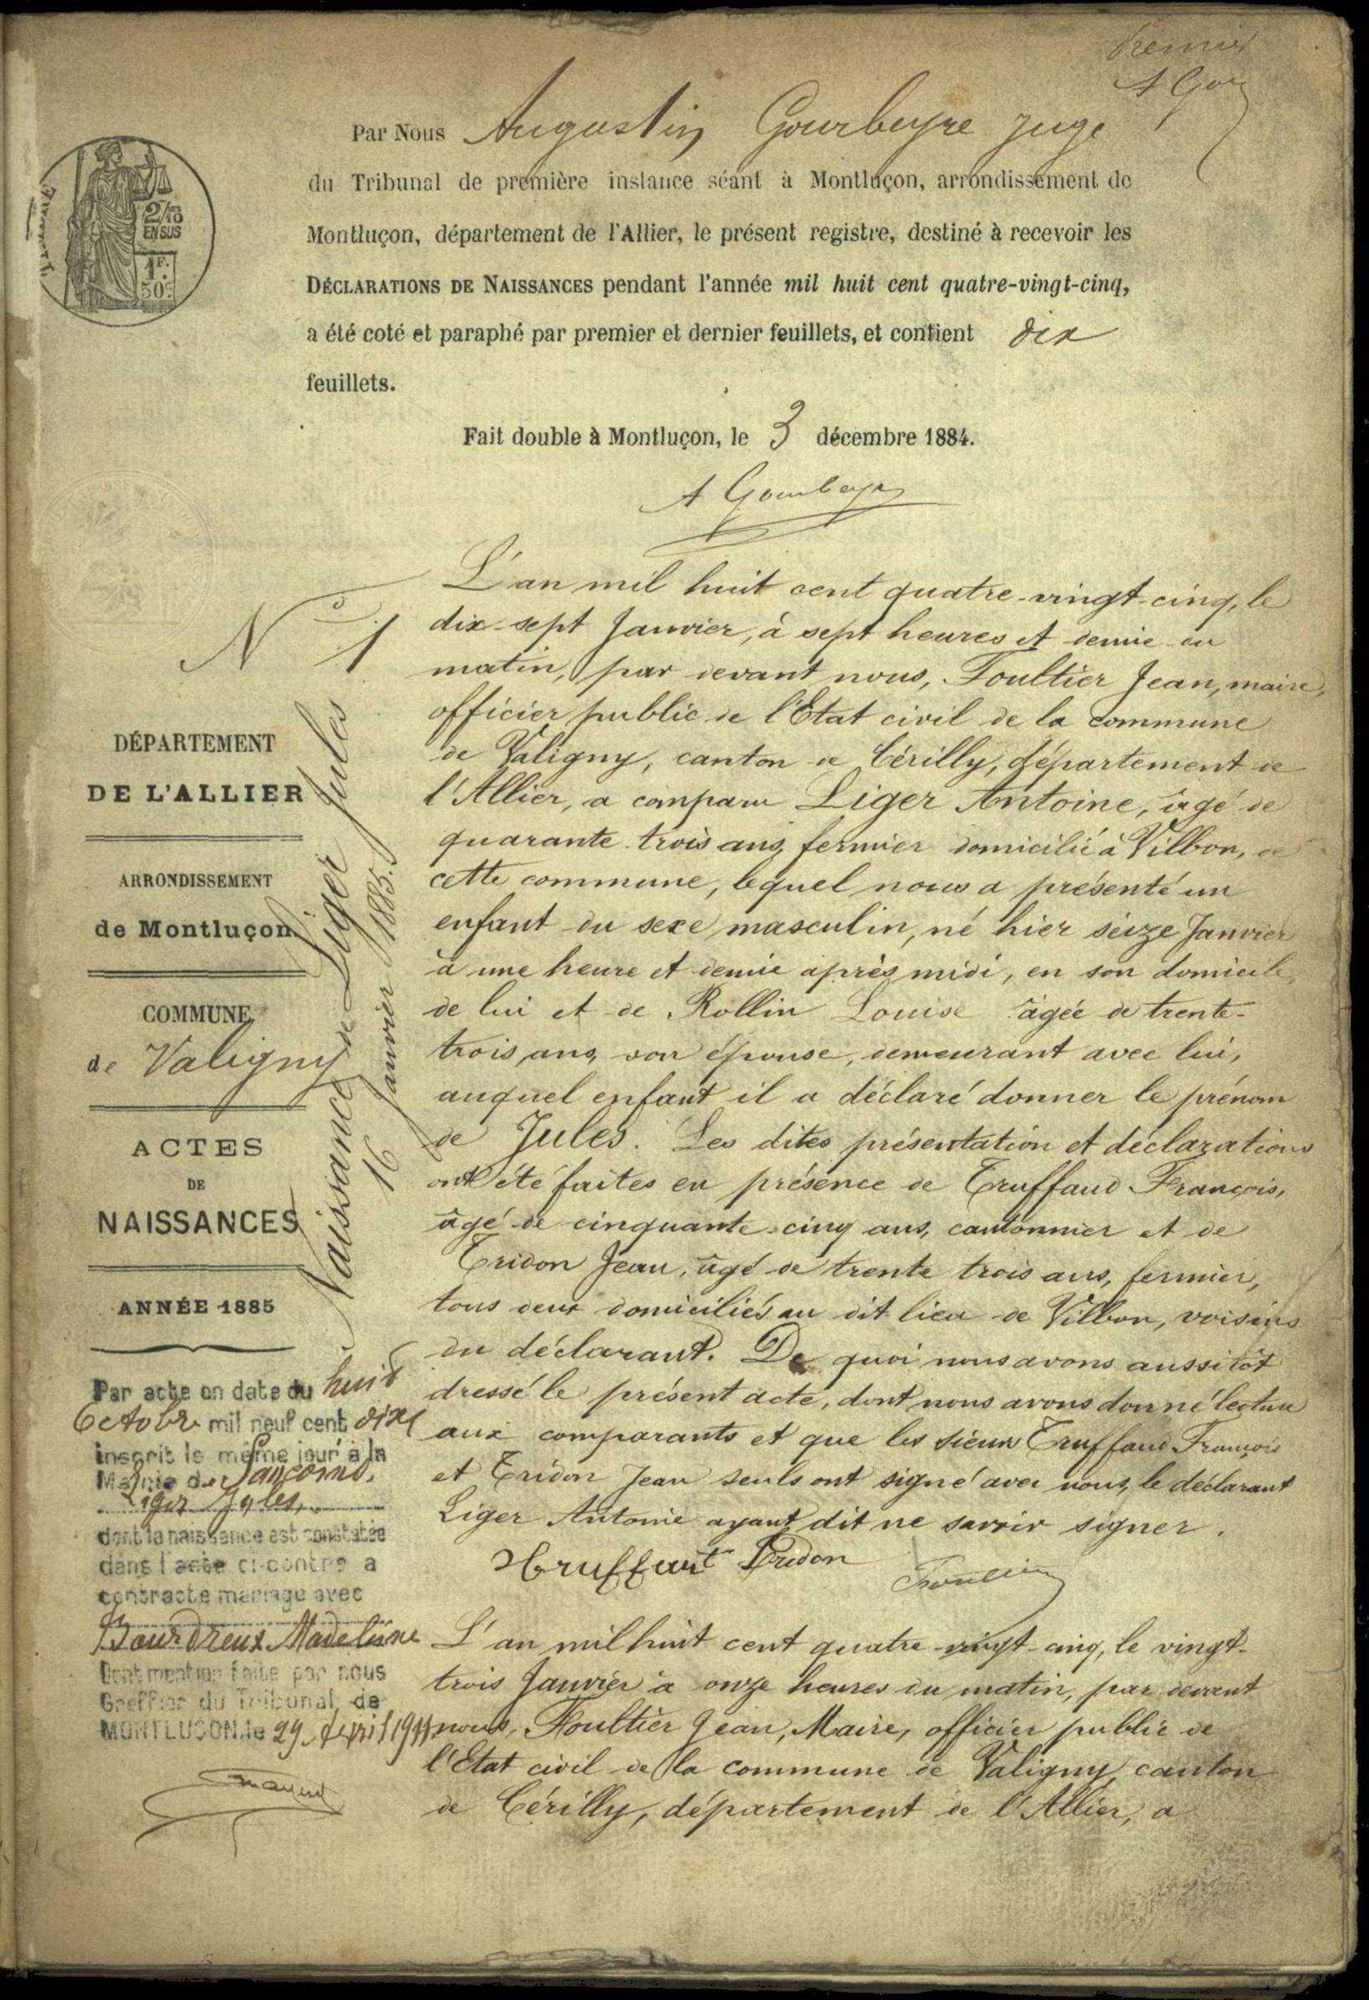 Premier
A Gou
Par Nous Augustin Gourbeyre juge
du Tribunal de première instance séant à Montluçon, arrondissement de
Montluçon, département de l'Allier, le présent registre, destiné à recevoir les
DÉCLARATIONS DE NAISSANCES pendant l'année mil huit cent quatre-vingt-cinq,
a été coté et paraphé par premier et dernier feuillets, et contient dix
feuillets.
Fait double à Montluçon, le 3 décembre 1884.
A Gourbeyre
2/10
EN SUS
1F.
50c
No 1
DÉPARTEMENT
DE L'ALLIER
ARRONDISSEMENT
de Montluçon
COMMUNE
de Valigny
ACTES
DE
NAISSANCES
ANNÉE 1885
Naissance de Liger Jules
16 Janvier 1885.
Par acte en date du huit
Octobre mil neuf cent dix
inscrit le même jour à la
Mairie de Sancoins,
Liger Jules,
dont la naissance est constatée
dans l'acte ci-contre a
contracté mariage avec
Bourdreux Madeleine
Dont mention faite par nous
Greffier du Tribunal de
MONTLUÇON, le 29 Avril 1911
L'an mil huit cent quatre-vingt-cinq, le
dix-sept Janvier, à sept heures et demie du
matin, par devant nous, Foultier Jean, maire,
officier public de l'Etat civil de la commune
de Valigny, canton de Cérilly, département de
l'Allier, a comparu Liger Antoine, âgé de
quarante trois ans, fermier domicilié à Vilbon, de
cette commune, lequel nous a présenté un
enfant du sexe masculin, né hier seize Janvier
à une heure et demie après midi, en son domicile,
de lui et de Rollin Louise âgée de trente-
trois ans, son épouse, demeurant avec lui,
auquel enfant il a déclaré donner le prénom
de Jules. Les dites présentation et déclarations
ont été faites en présence de Truffaud François,
âgé de cinquante-cinq ans, cantonnier et de
Tridon Jean, âgé de trente trois ans, fermier,
tous deux domiciliés au dit lieu de Vilbon, voisins
du déclarant. De quoi nous avons aussitôt
dressé le présent acte, dont nous avons donné lecture
aux comparants et que les sieurs Truffaud François
et Tridon Jean seuls ont signé avec nous, le déclarant
Liger Antoine ayant dit ne savoir signer.
Truffaut Tridon Foultier
L'an mil huit cent quatre-vingt-cinq, le vingt-
trois Janvier à onze heures du matin, par devant
nous, Foultier Jean, Maire, officier public de
l'Etat civil de la commune de Valigny, canton
de Cérilly, département de l'Allier, a